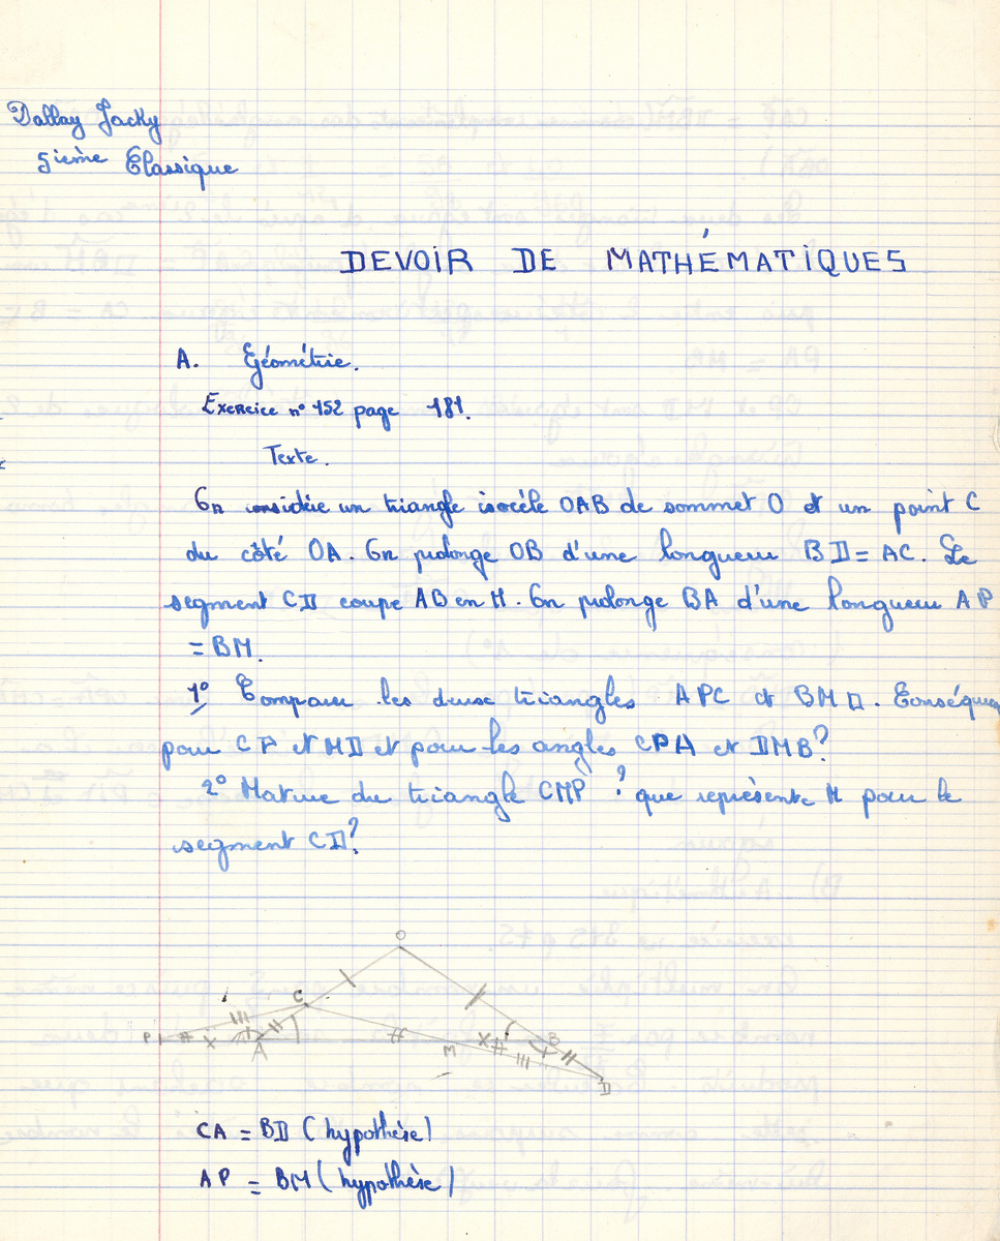 Dallay Jacky
5ième Classique
DEVOIR DE MATHÉMATIQUES
A. Géométrie.
Exercice n° 152 page 181.
Texte.
On considère un triangle isocèle OAB de sommet O et un point C
du côté OA. On prolonge OB d'une longueur BD = AC. Le
segment CD coupe AB en M. On prolonge BA d'une longueur AP
= BM.
1° Comparer les deux triangles APC et BMD. Conséquen
pour CP et MD et pour les angles CPA et DMB?
2° Nature du triangle CMP? que représente M pour le
segment CD?
O
C
P
A
M
B
D
CA = BD (hypothèse)
AP = BM (hypothèse)